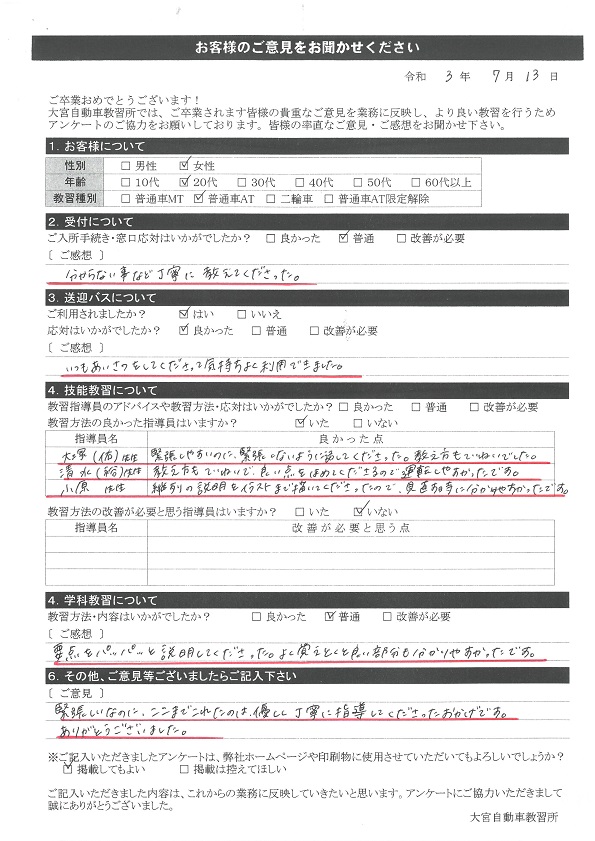 お客様のご意見をお聞かせください
令和 3 年 7 月 13 日
ご卒業おめでとうございます！
大宮自動車教習所では、ご卒業されます皆様の貴重なご意見を業務に反映し、より良い教習を行うため
アンケートのご協力をお願いしております。皆様の率直なご意見・ご感想をお聞かせ下さい。
1. お客様について
性別 □ 男性 ☑ 女性
年齢 □ 10代 ☑ 20代 □ 30代 □ 40代 □ 50代 □ 60代以上
教習種別 □ 普通車MT ☑ 普通車AT □ 二輪車 □ 普通車AT限定解除
2. 受付について
ご入所手続き・窓口応対はいかがでしたか？ □ 良かった ☑ 普通 □ 改善が必要
〔 ご感想 〕
分からない事など丁寧に教えてくださった。
3. 送迎バスについて
ご利用されましたか？ ☑ はい □ いいえ
応対はいかがでしたか？ ☑ 良かった □ 普通 □ 改善が必要
〔 ご感想 〕
いつもあいさつをしてくださって気持ちよく利用できました。
4. 技能教習について
教習指導員のアドバイスや教習方法・応対はいかがでしたか？ □ 良かった □ 普通 □ 改善が必要
教習方法の良かった指導員はいますか？ ☑ いた □ いない
指導員名 良かった点
大塚(佑)先生 緊張しやすいのに、緊張しないように話してくださった。教え方もていねいでした。
清水(裕)先生 教え方もていねいで、良い点をほめてくださるので運転しやすかったです。
小原 先生 縦列の説明をイラストまで描いてくださったので、見直す時に分かりやすかったです。
教習方法の改善が必要と思う指導員はいますか？ □ いた ☑ いない
指導員名 改善が必要と思う点
4. 学科教習について
教習方法・内容はいかがでしたか？ □ 良かった ☑ 普通 □ 改善が必要
〔 ご感想 〕
要点をパッパッと説明してくださった。よく覚えとくと良い部分も分かりやすかったです。
6. その他、ご意見等ございましたらご記入下さい
〔 ご意見 〕
緊張しいなのに、ここまでこれたのは、優しく丁寧に指導してくださったおかげです。
ありがとうございました。
※ご記入いただきましたアンケートは、弊社ホームページや印刷物に使用させていただいてもよろしいでしょうか？
☑ 掲載してもよい □ 掲載は控えてほしい
ご記入いただきました内容は、これからの業務に反映していきたいと思います。アンケートにご協力いただきまして
誠にありがとうございました。
大宮自動車教習所